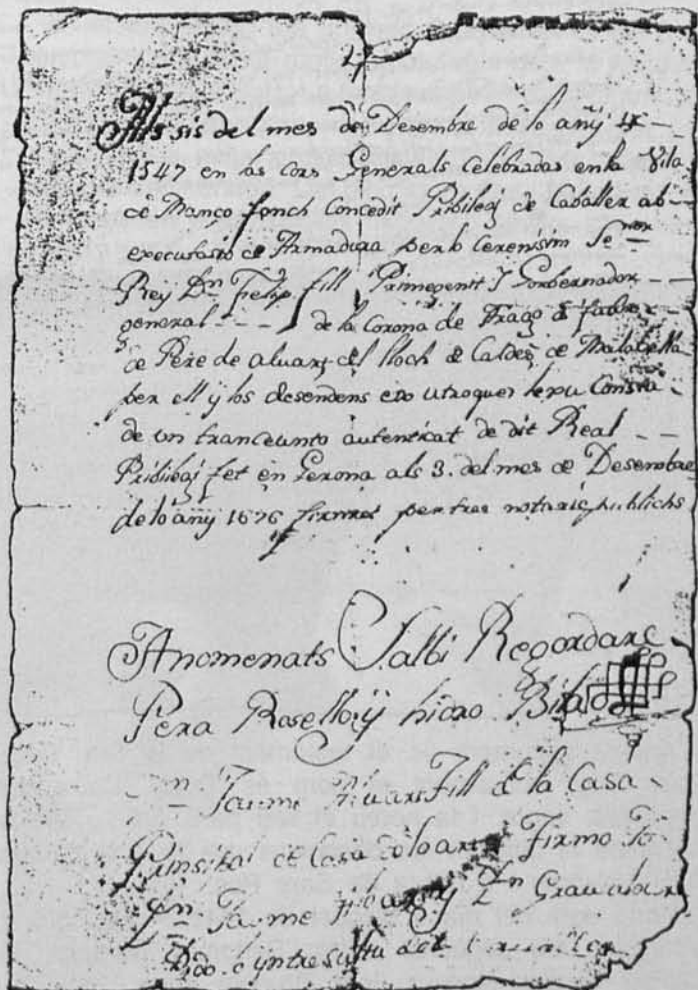 Als sis del mes de Desembre de lo añy
1547 en las cors Generals Celebradas en la Vila
de Monço fonch Concedit Pribileg de Caballer ab
execusasio de Armadura per lo Cerenisim Senor
Rey Dn Felip fill Primogenit Y Gorbernador
general - - - de la Corona de Arago a fabor
de Pere de aluars del lloch de Caldes de Malabella
per ell y los desendens exo utroquer sexu Consta
de un tranceunto autenticat de dit Real
Pribileg fet en Gerona als 3. del mes de Desembre
de lo añy 1676 firmat per tres notaris publichs
Anomenats Salbi Regordare
Pera Rosello y hidro Bila
Dn Jaume Aluars Fill de la Casa
Prinsibal de Casa Firmo Jo
Dn Jaume y Dn Grau